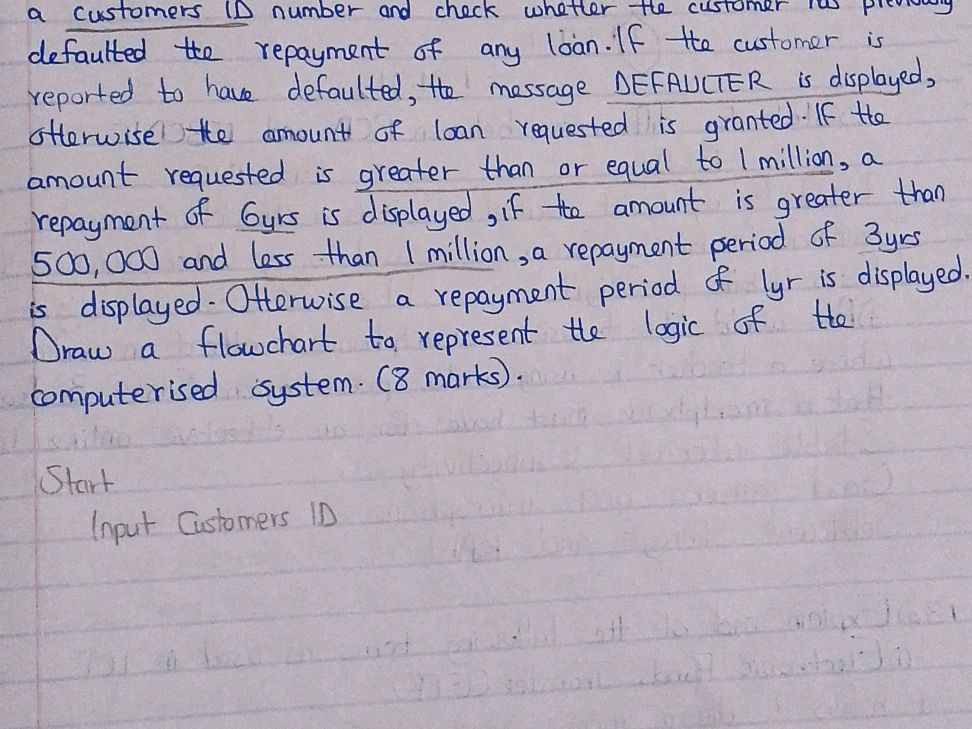 a customers ID number and check whether the customer has previously
defaulted the repayment of any loan. If the customer is
reported to have defaulted, the message DEFAULTER is displayed,
otherwise the amount of loan requested is granted. If the
amount requested is greater than or equal to 1 million, a
repayment of 6yrs is displayed, if the amount is greater than
500,000 and less than 1 million, a repayment period of 3yrs
is displayed. Otherwise a repayment period of 1yr is displayed.
Draw a flowchart to represent the logic of the
computerised system. (8 marks).
Start
Input Customers ID